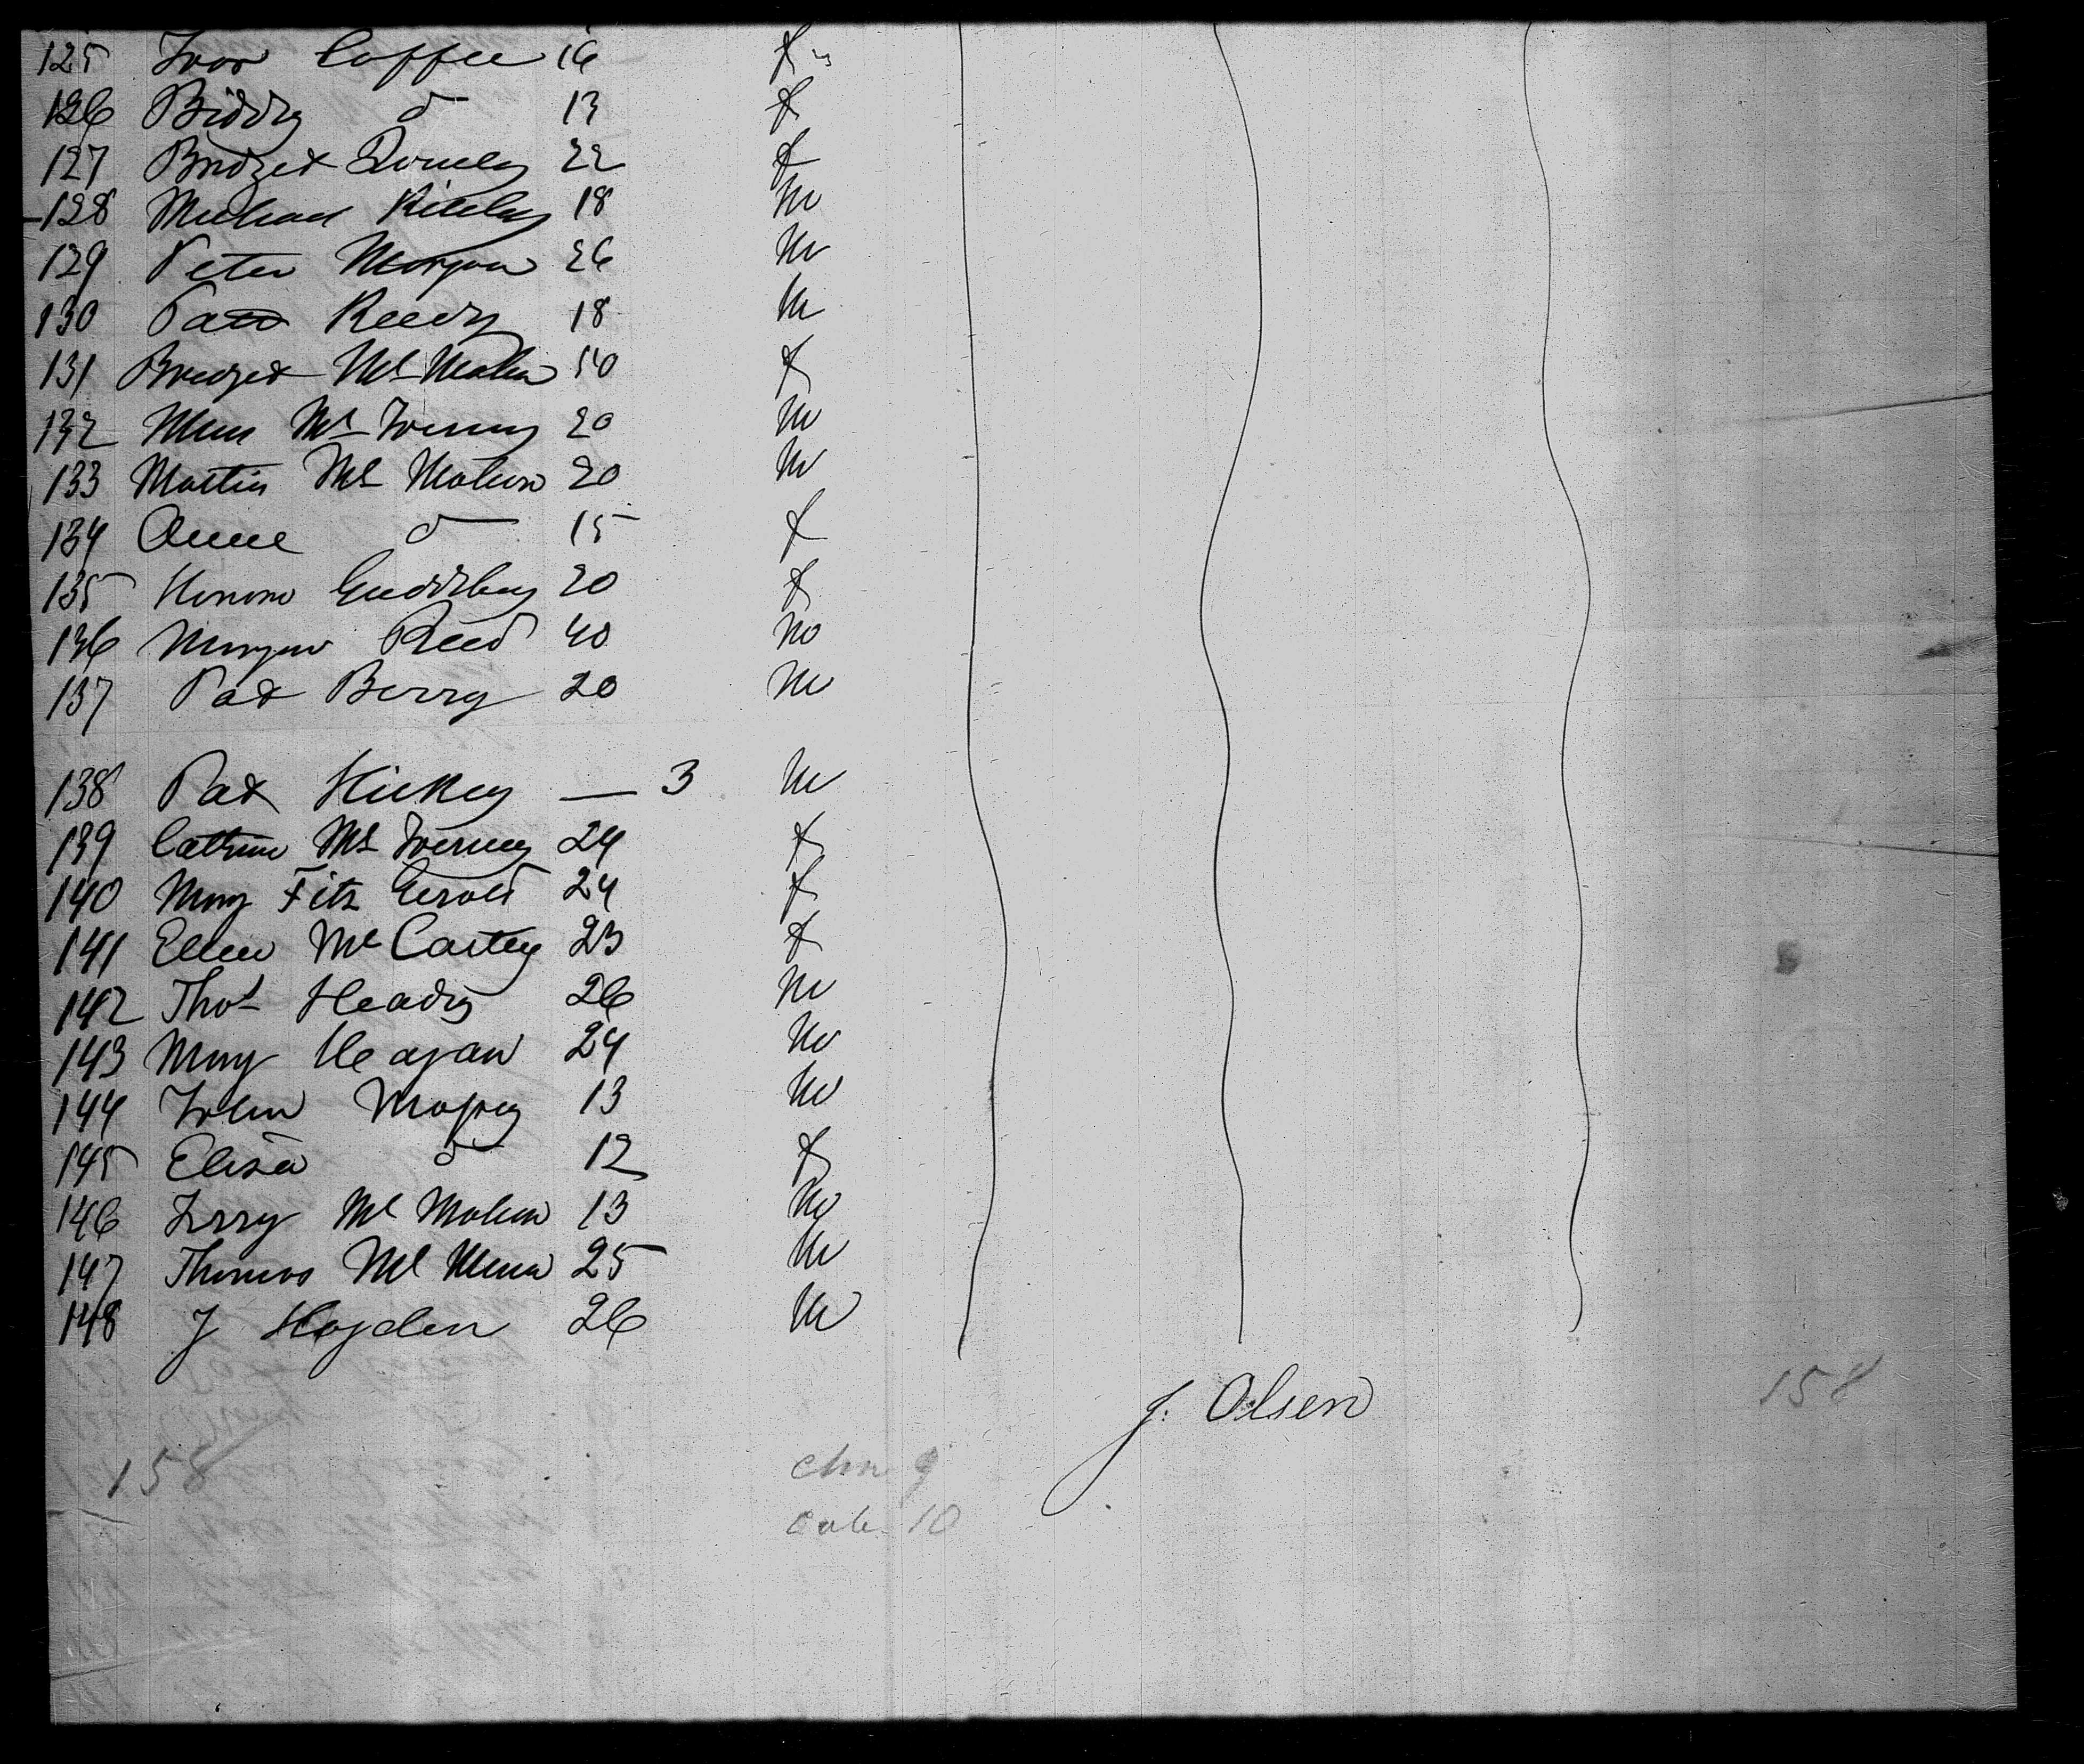 125 Coffee 16 f
126 Biddy do 13 f
127 Bridget 22 f
128 Michael 18 m
129 Peter Morgan 26 m
130 Reedy 18 m
131 Bridget Mc Mahon 50 f
132 20 m
133 Martin Mc Mahon 20 m
134 Anne do 15 f
135 20 f
136 Morgan Reed 40 m
137 Pat Berry 20 m
138 Pat Hickey — 3 m
139 24 f
140 Mary Fitz Gerold 24 f
141 Ellen Mc Cartey 23 f
142 Thos Heady 26 m
143 Mary Heagan 24 m
144 John 13 m
145 Elisa do 12 f
146 Mc Mahon 13 m
147 Thomas Mc 25 m
148 J Hogden 26 m
J. Olsen
158
158
9
10